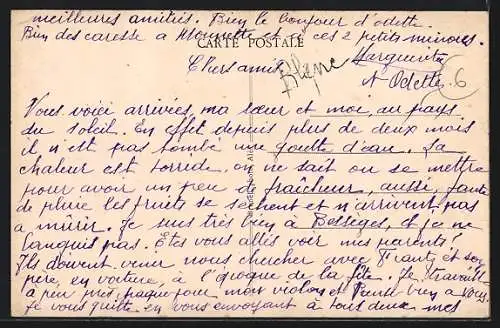 meilleures amitiés. Bien le bonjour d'odette.
Bien des caresse à et à ces 2 petits minous.
CARTE POSTALE
Marguerite
Chers amis
et Odette.
6
Vous voici arrivées, ma sœur et moi, au pays
du soleil. En effet depuis plus de deux mois
il n'est pas tombé une goutte d'eau. La
chaleur est torride, on ne sait ou se mettre
pour avoir un peu de fraîcheur, aussi, faute
de pluie les fruits se sèchent et n'arrivent pas
à mûrir. Je suis très bien à Bessèges, et je ne
languis pas. Êtes vous allés voir mes parents?
Ils doivent venir nous chercher avec et son
père, en voiture, à l'époque de la fête. Je travaille
à peu près chaque jour mon violon et bien à vous
Je vous quitte en vous envoyant à tous deux mes